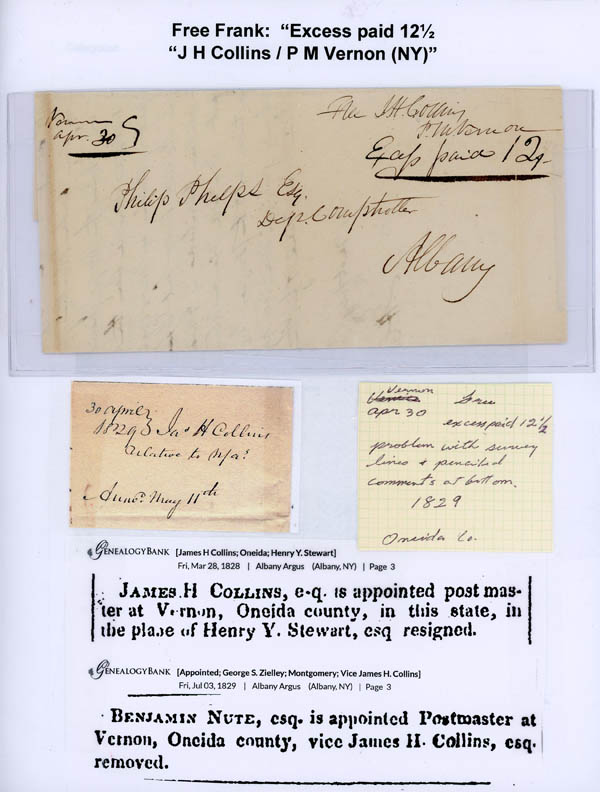 Free Frank: “Excess paid 12½
“J H Collins / P M Vernon (NY)”
Vernon
Apr. 30
Free J H Collins
P.M Vernon
Excess paid 12½
Philip Phelps Esq.
Dep. Comptroller
Albany
30 April
1829 Jas H Collins
relative to
Ansd. May 11th
Vernon
Apr 30
free
excess paid 12½
problem with survey
lines & penciled
comments at bottom.
1829
Oneida Co.
GENEALOGYBANK [James H Collins; Oneida; Henry Y. Stewart]
Fri, Mar 28, 1828 | Albany Argus (Albany, NY) | Page 3
JAMES H COLLINS, esq. is appointed post mas-
ter at Vernon, Oneida county, in this state, in
the place of Henry Y. Stewart, esq resigned.
GENEALOGYBANK [Appointed; George S. Zielley; Montgomery; Vice James H. Collins]
Fri, Jul 03, 1829 | Albany Argus (Albany, NY) | Page 3
BENJAMIN NUTE, esq. is appointed Postmaster at
Vernon, Oneida county, vice James H. Collins, esq.
removed.